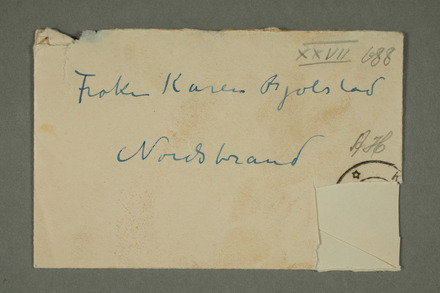 XXVII 688
Frøken Karen Bjølstad
AH
Nordstrand